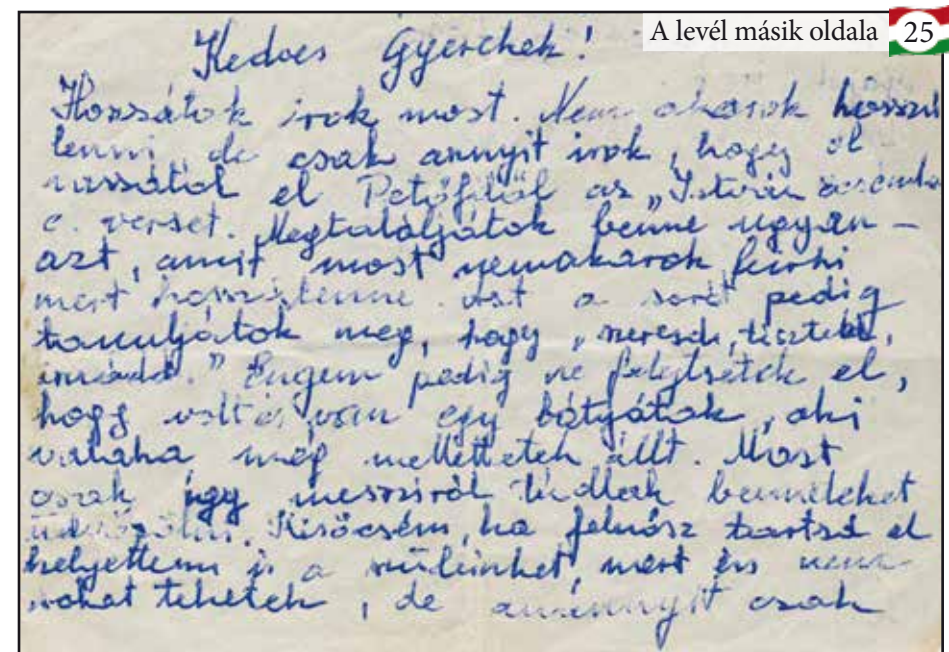 A levél másik oldala 25
Kedves Gyerekek!
Hozzátok irok most. Nem akarok hosszú
lenni, de csak annyit irok, hogy ol
vassátok el Petőfitől az "István öcsémhez
c. verset. Megtaláljátok benne ugyan-
azt, amit most nem akarok leirni
mert hosszú lenne. Azt a sorát pedig
tanuljátok meg, hogy "szeresd, tiszteld,
imádd." Engem pedig ne felejtsétek el,
hogy volt és van egy bátyátok, aki
valaha még mellettetek állt. Most
csak úgy messziről tudlak benneteket
üdvözölni. Kisöcsém, ha felnősz tartsd el
helyettem is a szüleinket, mert én nem
sokat tehetek, de amennyit csak